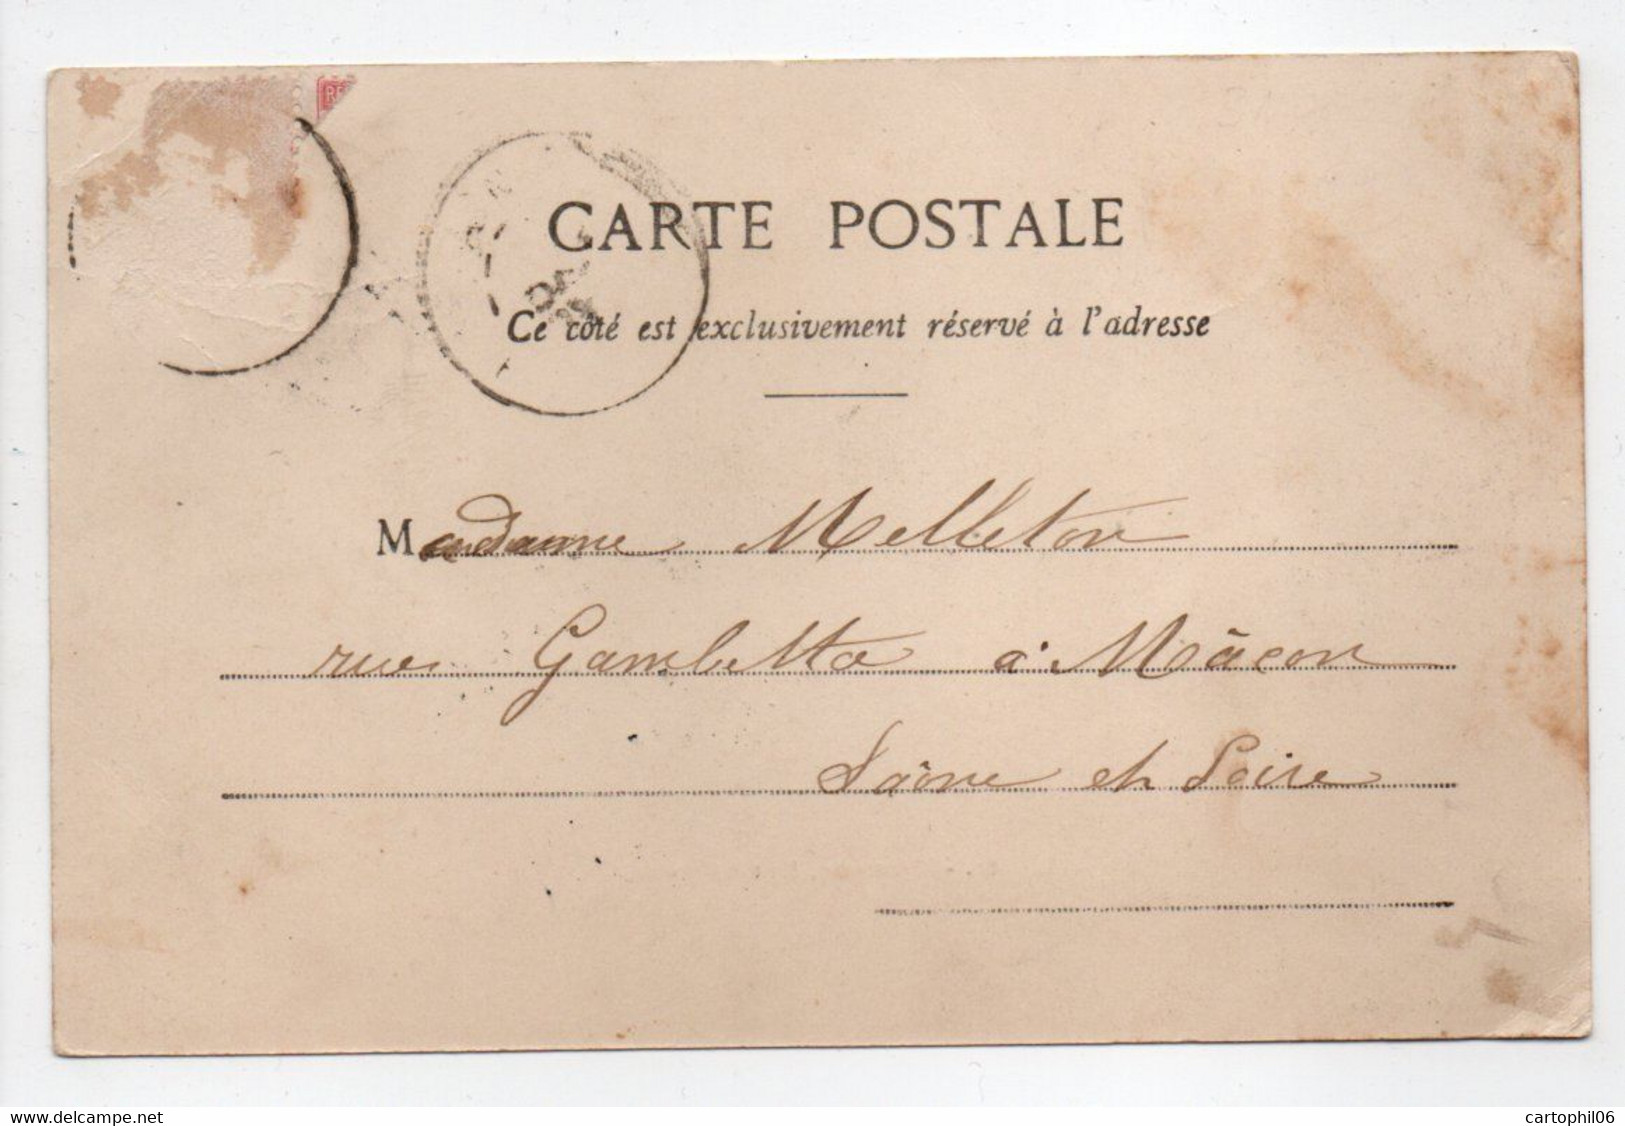 RF
CARTE POSTALE
Ce côté est exclusivement réservé à l'adresse
Madame Melleton
rue Gambetta à Mâcon
Saône et Loire
www.delcampe.net
cartophil06